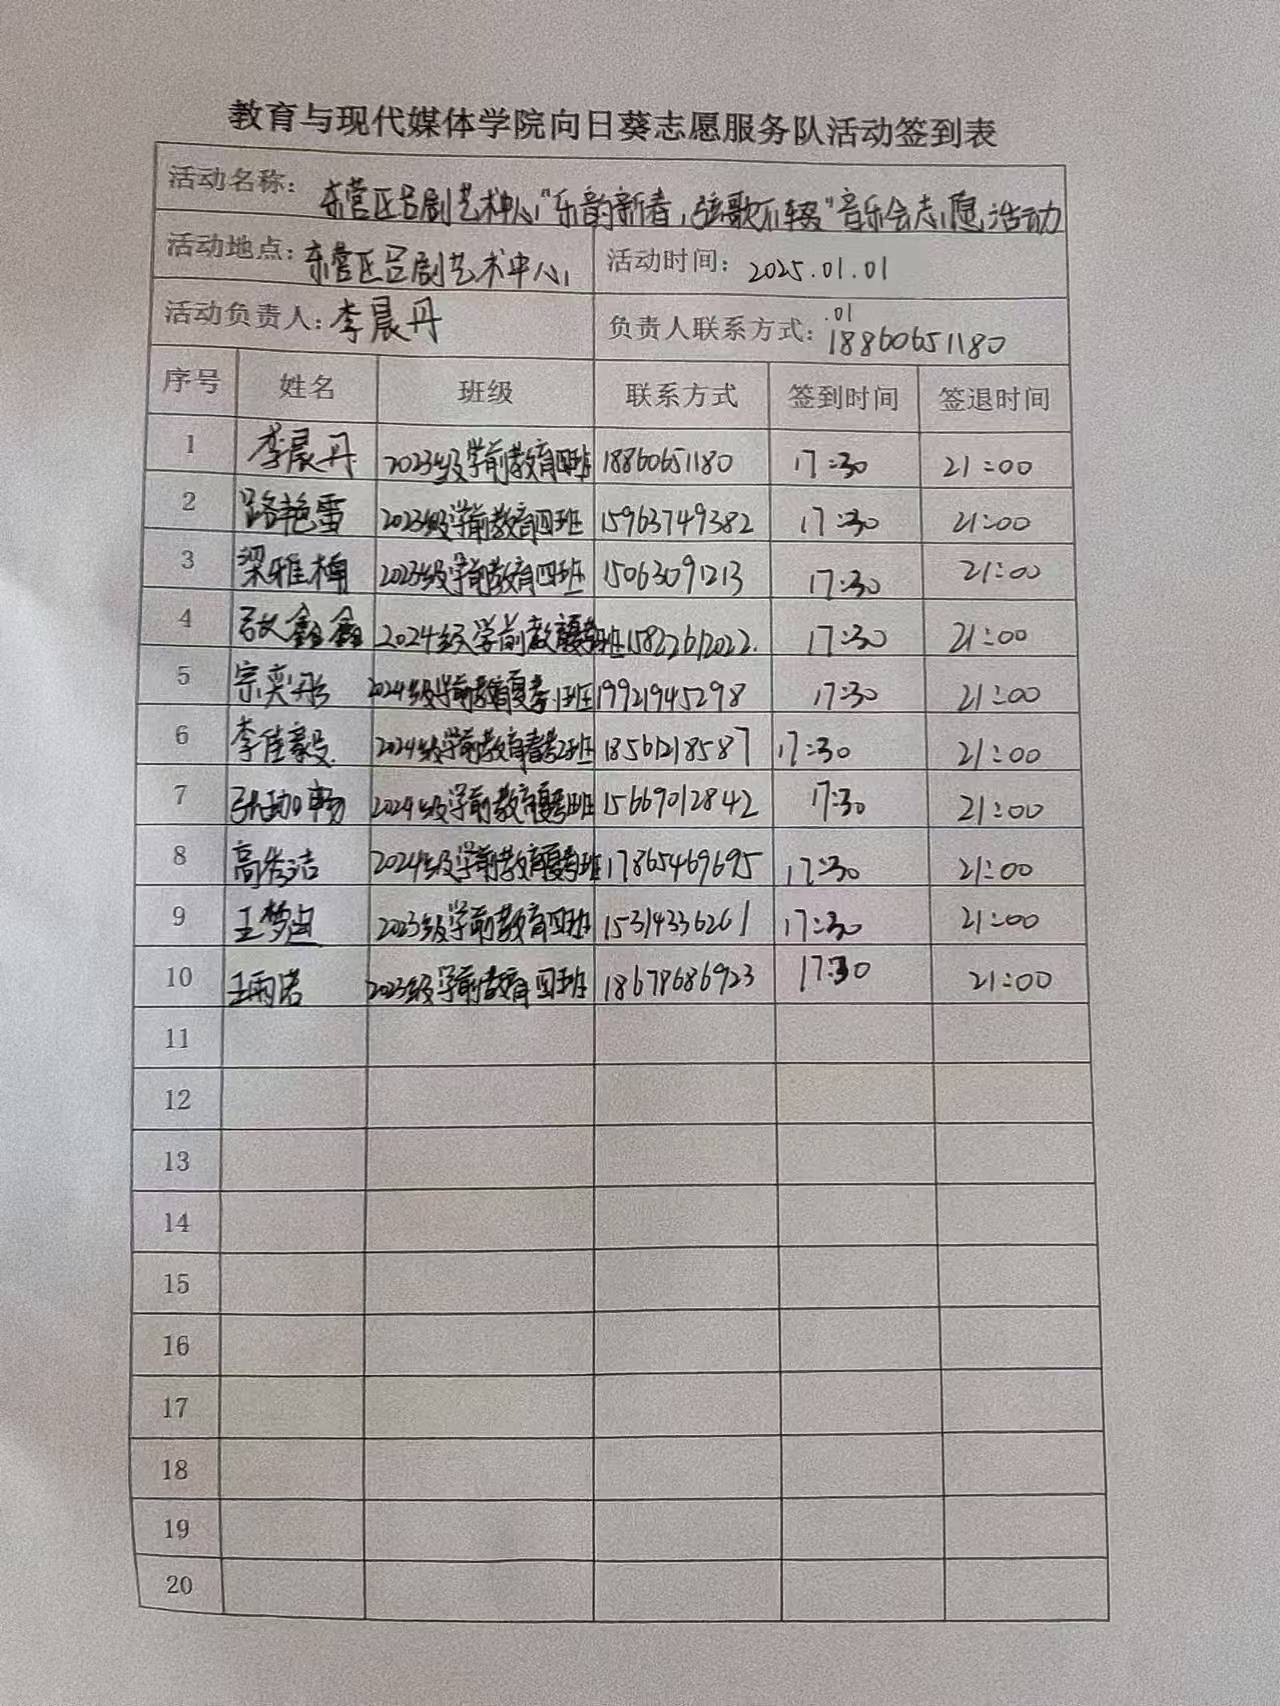 教育与现代媒体学院向日葵志愿服务队活动签到表
活动名称: 东营区吕剧艺术中心"乐韵新春,弦歌不辍"音乐会志愿活动
活动地点: 东营区吕剧艺术中心 活动时间: 2025.01.01
活动负责人: 李晨丹 负责人联系方式: 18860651180
.01
序号 姓名 班级 联系方式 签到时间 签退时间
1 李晨丹 2023级学前教育四班 18860651180 17:30 21:00
2 路艳雪 2023级学前教育四班 15963749382 17:30 21:00
3 梁雅楠 2023级学前教育四班 15063091213 17:30 21:00
4 鑫鑫 2024级学前教育 班 15822612022. 17:30 21:00
5 宗奕彤 2024级学前教育夏考1班 19921945298 17:30 21:00
6 李佳毅 2024级学前教育春考2班 18561218587 17:30 21:00
7 张珈畅 2024级学前教育夏考1班 15669012842 17:30 21:00
8 高秀洁 2024级学前教育夏考1班 17865469695 17:30 21:00
9 王梦 2023级学前教育四班 15314336261 17:30 21:00
10 王雨诺 2023级学前教育四班 18678686923 17:30 21:00
11
12
13
14
15
16
17
18
19
20